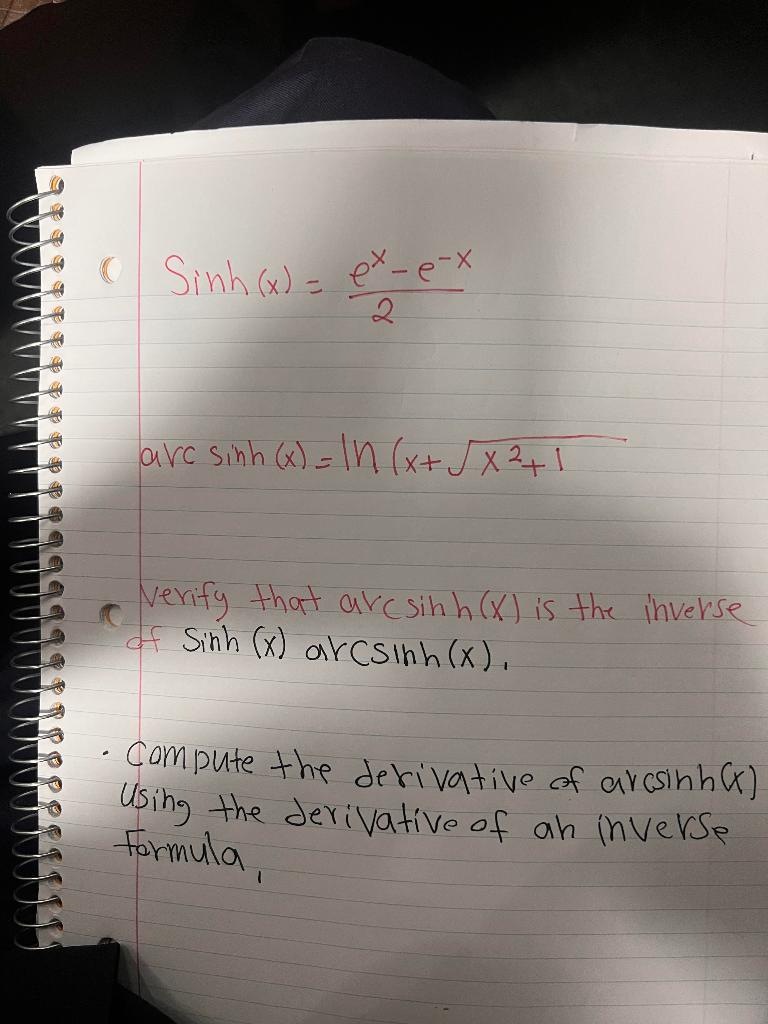 Sinh(x) = e^x - e^-x / 2
arc sinh(x) = ln(x + √x²+1
Verify that arcsinh(x) is the inverse
of Sinh(x) arcsinh(x).
· Compute the derivative of arcsinh(x)
Using the derivative of an inverse
formula,